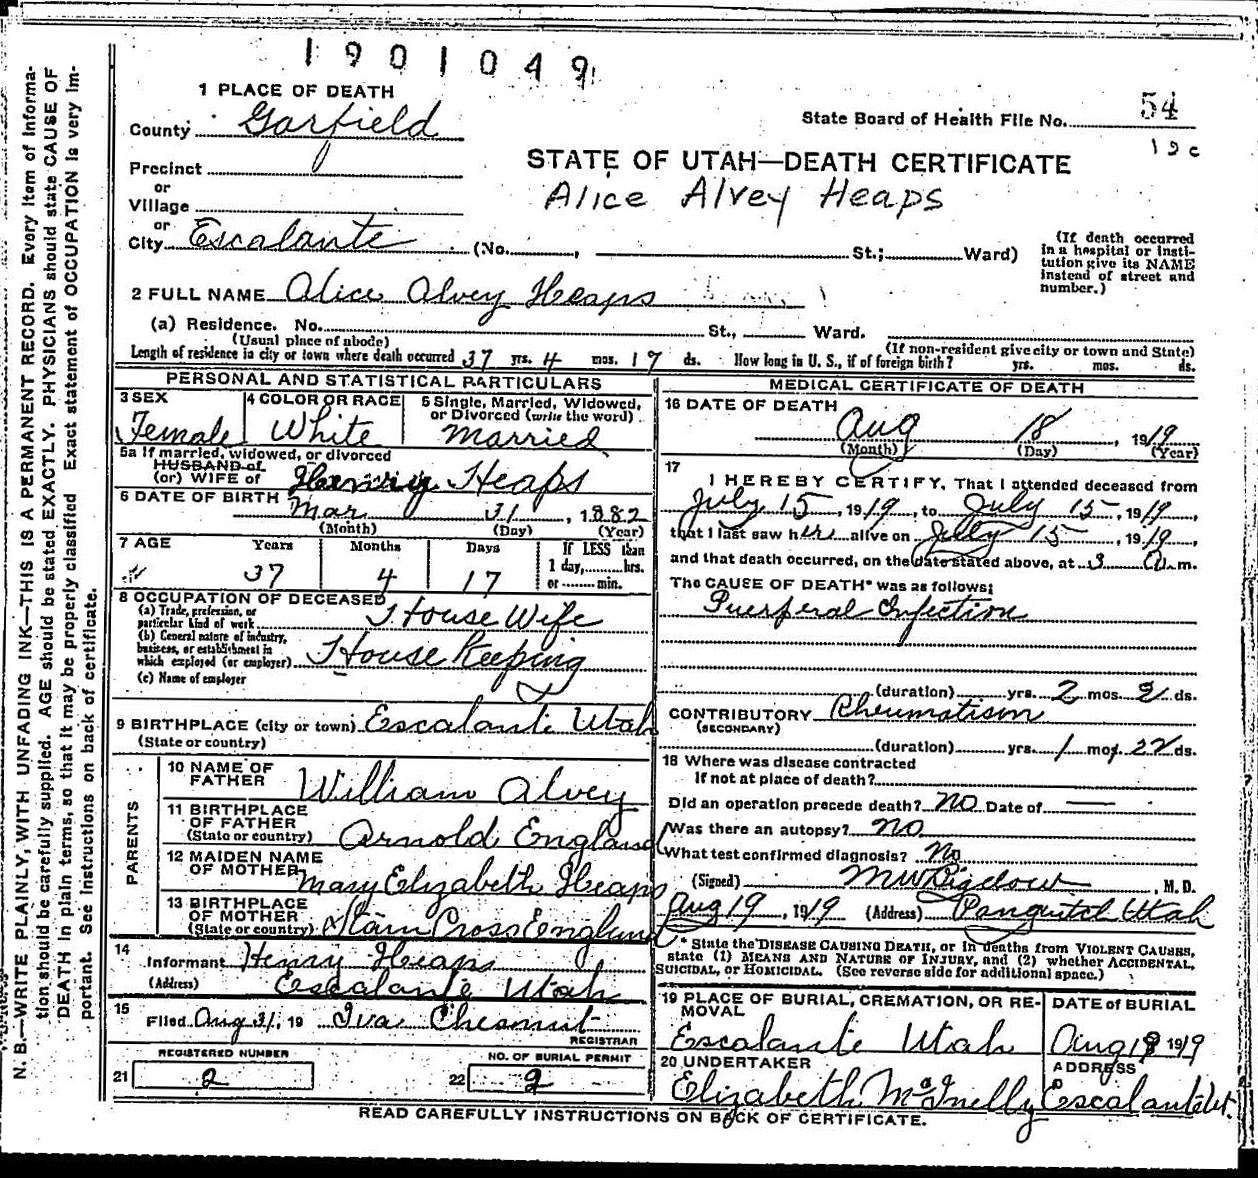 1901049
1 PLACE OF DEATH
State Board of Health File No. 54
County Garfield
Precinct
or
Village
or
City Escalante (No. , St.; Ward)
STATE OF UTAH—DEATH CERTIFICATE
Alice Alvey Heaps
(If death occurred in a hospital or institution give its NAME instead of street and number.)
2 FULL NAME Alice Alvey Heaps
(a) Residence. No. St., Ward.
(Usual place of abode) (If non-resident give city or town and State)
Length of residence in city or town where death occurred 37 yrs. 4 mos. 17 ds. How long in U. S., if of foreign birth? yrs. mos. ds.
PERSONAL AND STATISTICAL PARTICULARS
3 SEX Female
4 COLOR OR RACE White
5 Single, Married, Widowed, or Divorced (write the word) Married
5a If married, widowed, or divorced
HUSBAND of
(or) WIFE of Henry Heaps
6 DATE OF BIRTH Mar 31, 1882
(Month) (Day) (Year)
7 AGE Years Months Days If LESS than
1 day, hrs.
or min.
37 4 17
8 OCCUPATION OF DECEASED
(a) Trade, profession, or particular kind of work House Wife
(b) General nature of industry, business, or establishment in which employed (or employer) House Keeping
(c) Name of employer
9 BIRTHPLACE (city or town) Escalante Utah
(State or country)
PARENTS
10 NAME OF FATHER William Alvey
11 BIRTHPLACE OF FATHER (State or country) Arnold England
12 MAIDEN NAME OF MOTHER Mary Elizabeth Heaps
13 BIRTHPLACE OF MOTHER (State or country) Stain Cross England
14
Informant Henry Heaps
(Address) Escalante Utah
15
Filed Aug 31, 19 Iva Chesnut
REGISTRAR
REGISTERED NUMBER
21 2
NO. OF BURIAL PERMIT
22 2
MEDICAL CERTIFICATE OF DEATH
16 DATE OF DEATH
Aug 18, 1919
(Month) (Day) (Year)
17
I HEREBY CERTIFY, That I attended deceased from
July 15, 1919, to July 15, 1919,
that I last saw her alive on July 15, 1919,
and that death occurred, on the date stated above, at 3 a.m.
The CAUSE OF DEATH* was as follows:
Puerperal Infection
(duration) yrs. 2 mos. 21 ds.
CONTRIBUTORY Rheumatism
(SECONDARY)
(duration) yrs. 1 mos. 22 ds.
18 Where was disease contracted
If not at place of death?
Did an operation precede death? No Date of —
Was there an autopsy? No
What test confirmed diagnosis? No
(Signed) M W Bigelow, M. D.
Aug 19, 1919 (Address) Panguitch Utah
* State the DISEASE CAUSING DEATH, or in deaths from VIOLENT CAUSES,
state (1) MEANS AND NATURE OF INJURY, and (2) whether ACCIDENTAL,
SUICIDAL, or HOMICIDAL. (See reverse side for additional space.)
19 PLACE OF BURIAL, CREMATION, OR REMOVAL
Escalante Utah
DATE of BURIAL
Aug 19 1919
20 UNDERTAKER
Elizabeth McInelly
ADDRESS
Escalante Ut.
READ CAREFULLY INSTRUCTIONS ON BACK OF CERTIFICATE.
N. B.—WRITE PLAINLY, WITH UNFADING INK—THIS IS A PERMANENT RECORD. Every item of information should be carefully supplied. AGE should be stated EXACTLY. PHYSICIANS should state CAUSE OF DEATH in plain terms, so that it may be properly classified. Exact statement of OCCUPATION is very important. See instructions on back of certificate.